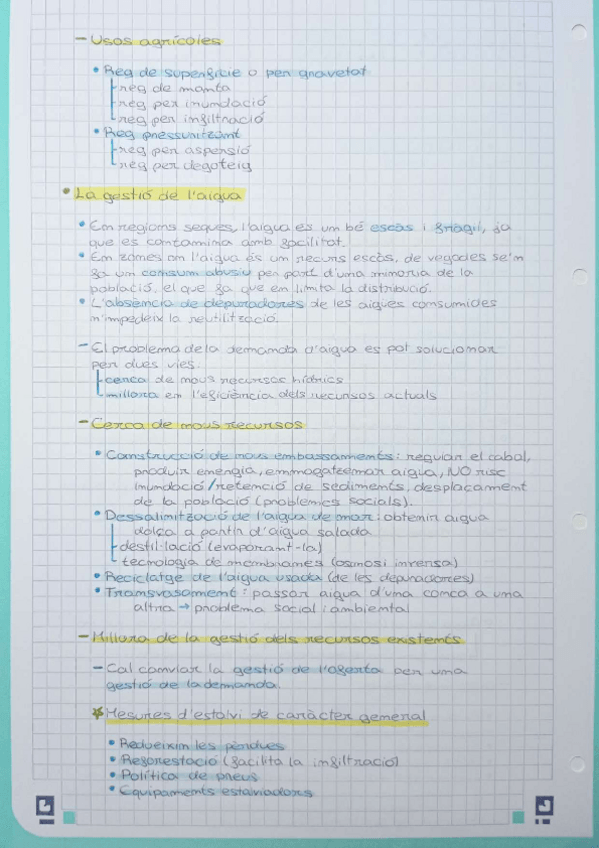 - Usos agrícoles
• Reg de superfície o per gravetat
reg de manta
reg per inundació
reg per infiltració
• Reg pressuritzant
reg per aspersió
reg per degoteig
• La gestió de l'aigua
• En regions seques, l'aigua és un bé escàs i fràgil, ja
que es contamina amb facilitat.
• En zones on l'aigua és un recurs escàs, de vegades se'n
fa un consum abusiu per part d'una minoria de la
població, el que fa que en limita la distribució.
• L'absència de depuradores de les aigües consumides
n'impedeix la reutilització.
- El problema de la demanda d'aigua es pot solucionar
per dues vies:
cerca de nous recursos hídrics
millora en l'eficiència dels recursos actuals
- Cerca de nous recursos
• Construcció de nous embassaments: regulan el cabal,
produir energia, emmagatzemar aigua, NO risc
inundació/retenció de sediments, desplaçament
de la població (problemes socials).
• Dessalinització de l'aigua de mar: obtenir aigua
dolça a partir d'aigua salada
destil·lació (evaporant-la)
tecnologia de membranes (osmosi inversa)
• Reciclatge de l'aigua usada (de les depuradores)
• Transvasament: passar aigua d'una conca a una
altra → problema social i ambiental
- Millora de la gestió dels recursos existents
- Cal canviar la gestió de l'oferta per una
gestió de la demanda.
Mesures d'estalvi de caràcter general
• Redueixin les pèrdues
• Reforestació (facilita la infiltració)
• Política de preus
• Equipaments estalviadors